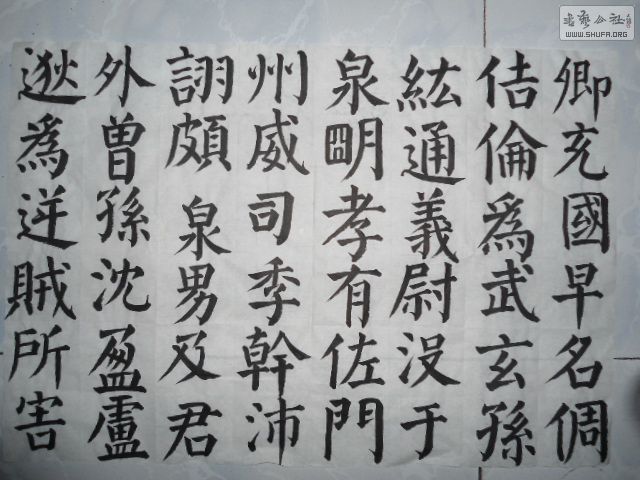 卿充國早名倜
佶倫爲武玄孫
紘通義尉没于
泉明孝有佐門
州威司季幹沛
詡頗泉男及君
外曾孫沈盈盧
逖爲逆賊所害
書藝公社
WWW.SHUFA.ORG